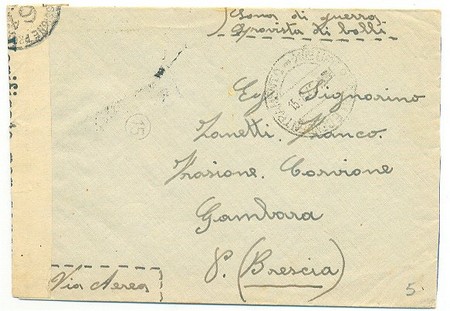 Zona di guerra
sprovista di bolli
15
Eg. Signorino
Zanetti Franco
Frazione Corvione
Gambara
P. (Brescia)
Via Aerea
5.